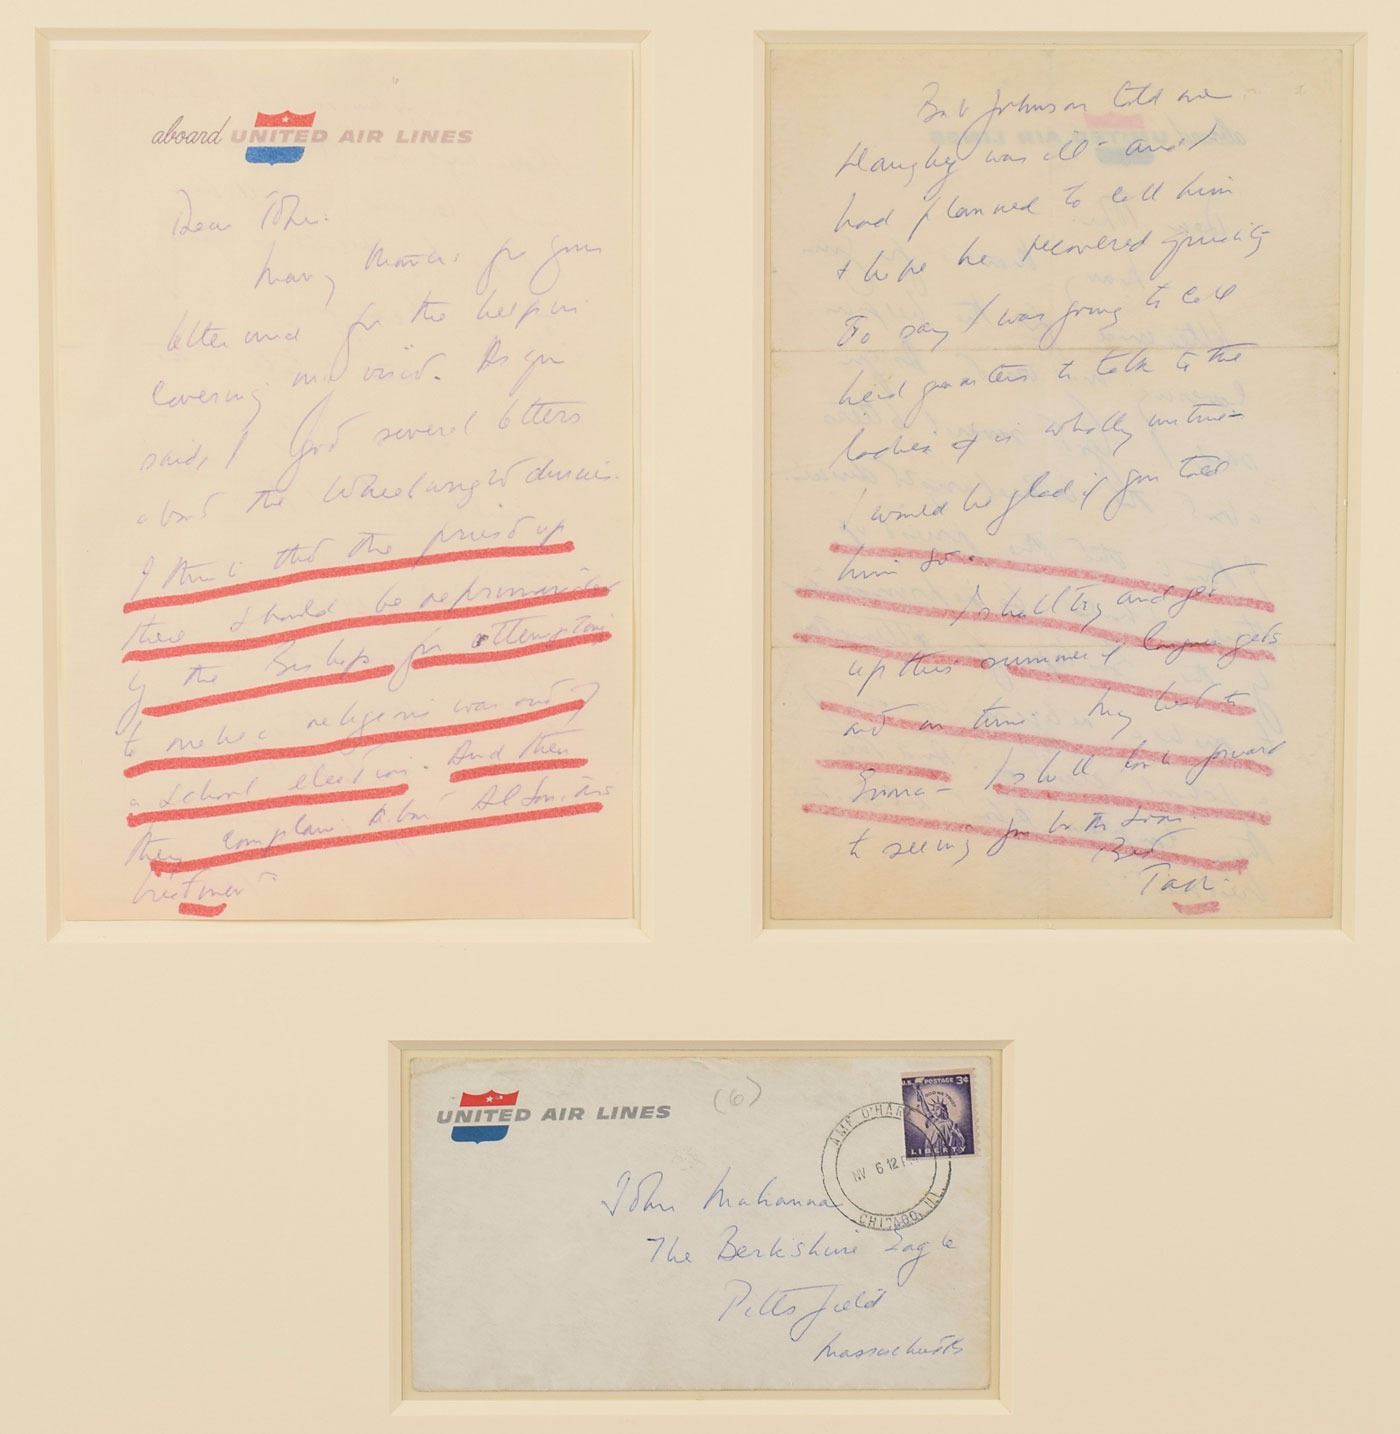 aboard UNITED AIR LINES
Dear John:
Many thanks for your
letter and for the help in
covering my visit. As you
said, I got several letters
about the
I think that the priest up
there should be reprimanded
by the Bishop for attempting
to make a religious war out of
a school election. And then
they complain about
treatment
Bob Johnson told me
Haughey was ill - and I
had planned to call him
I hope he recovered quickly
To say I was going to call
head quarters to talk to the
ladies is wholly untrue
I would be glad if you told
him so.
I shall try and get
up this summer if Congress gets
out on time. My best to
Emma - I shall look forward
to seeing you both soon.
Best
Jack
UNITED AIR LINES
(6)
U.S. POSTAGE 3¢
IN GOD WE TRUST
LIBERTY
AMF O'HAR
NV 6 12 P
CHICAGO, ILL.
John Mahanna
The Berkshire Eagle
Pittsfield
Massachusetts